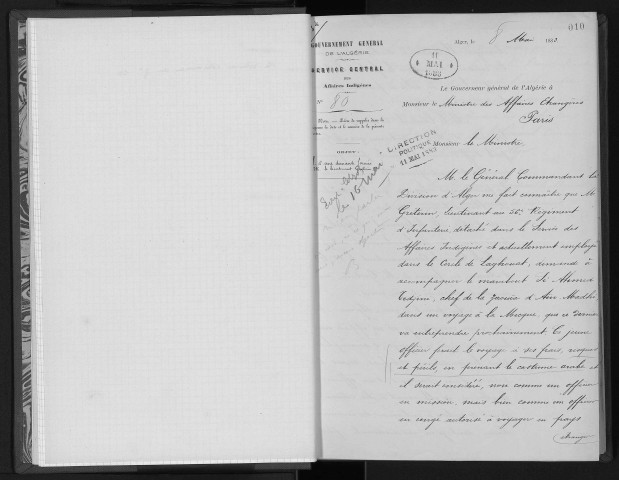 010
GOUVERNEMENT GÉNÉRAL
DE L'ALGÉRIE
SERVICE CENTRAL
des
Affaires Indigènes
N° 80
OBJET:
Alger, le 8 Mai 1883
11
MAI
1883
Le Gouverneur général de l'Algérie à
Monsieur le Ministre des Affaires Etrangères
Paris
DIRECTION
POLITIQUE
11 MAI 1883
Monsieur le Ministre,
le 16 mai
M. le Général Commandant la
Division d'Alger me fait connaître que M.
lieutenant au 50e Régiment
d'Infanterie détaché dans le Service des
Affaires Indigènes et actuellement employé
dans le Cercle de Laghouat, demande à
accompagner le marabout Si Ahmed
Tedjini, chef de la Zaouia d'Aïn Madhi,
dans un voyage à la Mecque, que ce dernier
va entreprendre prochainement. Ce jeune
officier ferait le voyage à ses frais, risques
et périls, en prenant le costume arabe et
il serait considéré, non comme un officier
en mission, mais bien comme un officier
en congé autorisé à voyager en pays
étranger